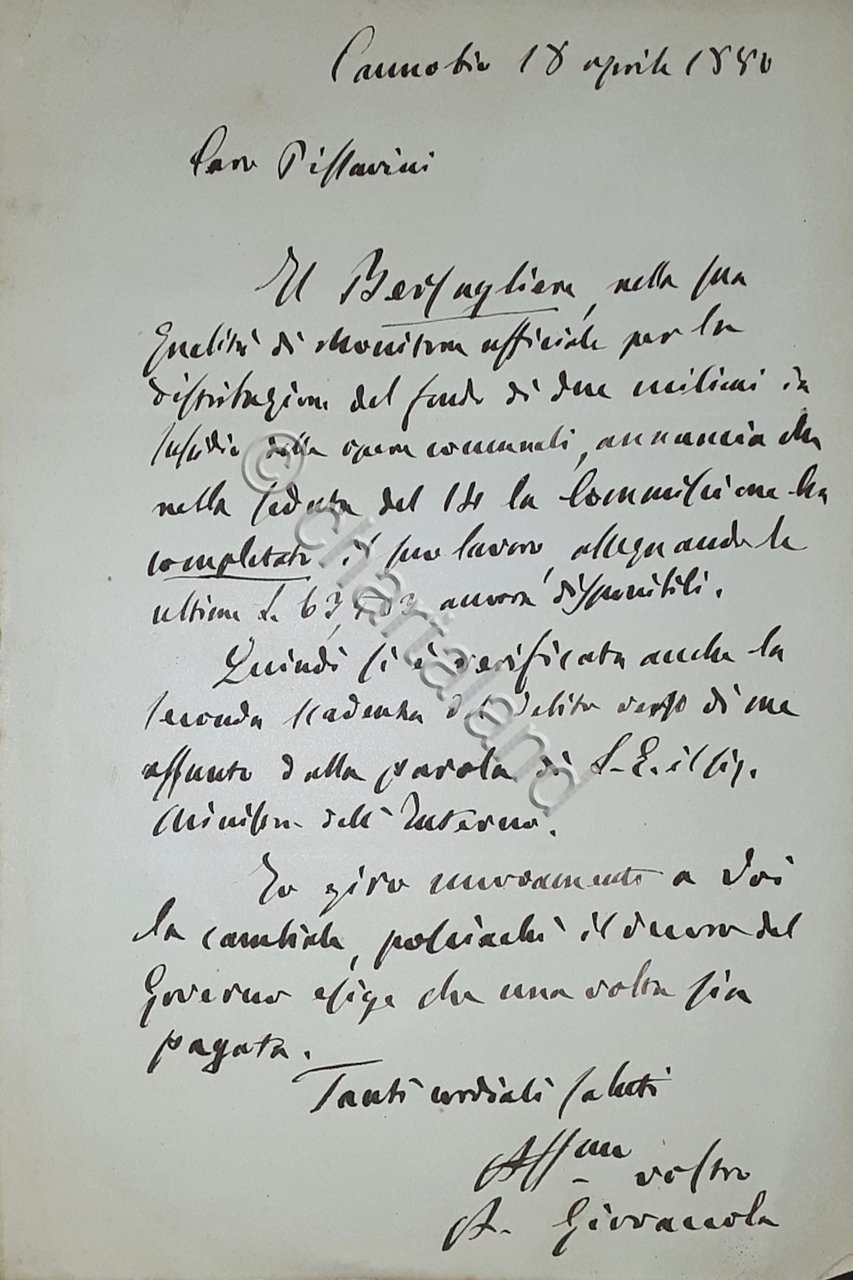 Cannobio 18 aprile 1880
Caro Pissavini
Il Bersagliere, nella sua
qualità di Monitore ufficiale per la
distribuzione del fondo di due milioni in
sussidio delle opere comunali, annuncia che
nella seduta del 14 la Commissione ha
completato il suo lavoro, assegnando le
ultime L. ancora disponibili.
Quindi si è verificata anche la
seconda scadenza del debito verso di me
assunto dalla parola di S. E. il sig.
Ministro dell'Interno.
Io giro nuovamente a Voi
la cambiale, posciachè il decoro del
Governo esige che una volta sia
pagata.
Tanti cordiali saluti
Affmo vostro
A. Giovanola
© chartaland